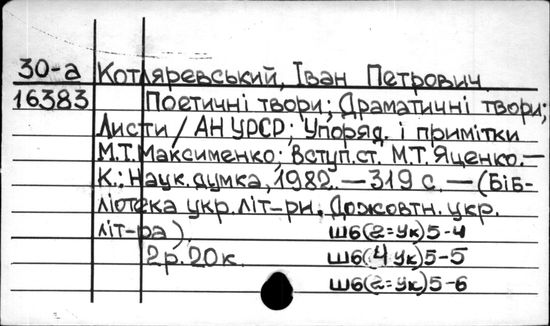 30-а Котляревський, Іван Петрович
16383 Поетичні твори; Драматичні твори;
Листи / АН УРСР; Упоряд. і примітки
М.Т. Максименко; Вступ. ст. М.Т. Яценко.—
К.: Наук. думка, 1982. — 319 с. — (Біб-
ліотека укр. літ-ри. Дожовтн. укр.
літ-ра). Ш6(2=Ук)5-4
2р. 20к. Ш6(4Ук)5-5
Ш6(2=Ук)5-6